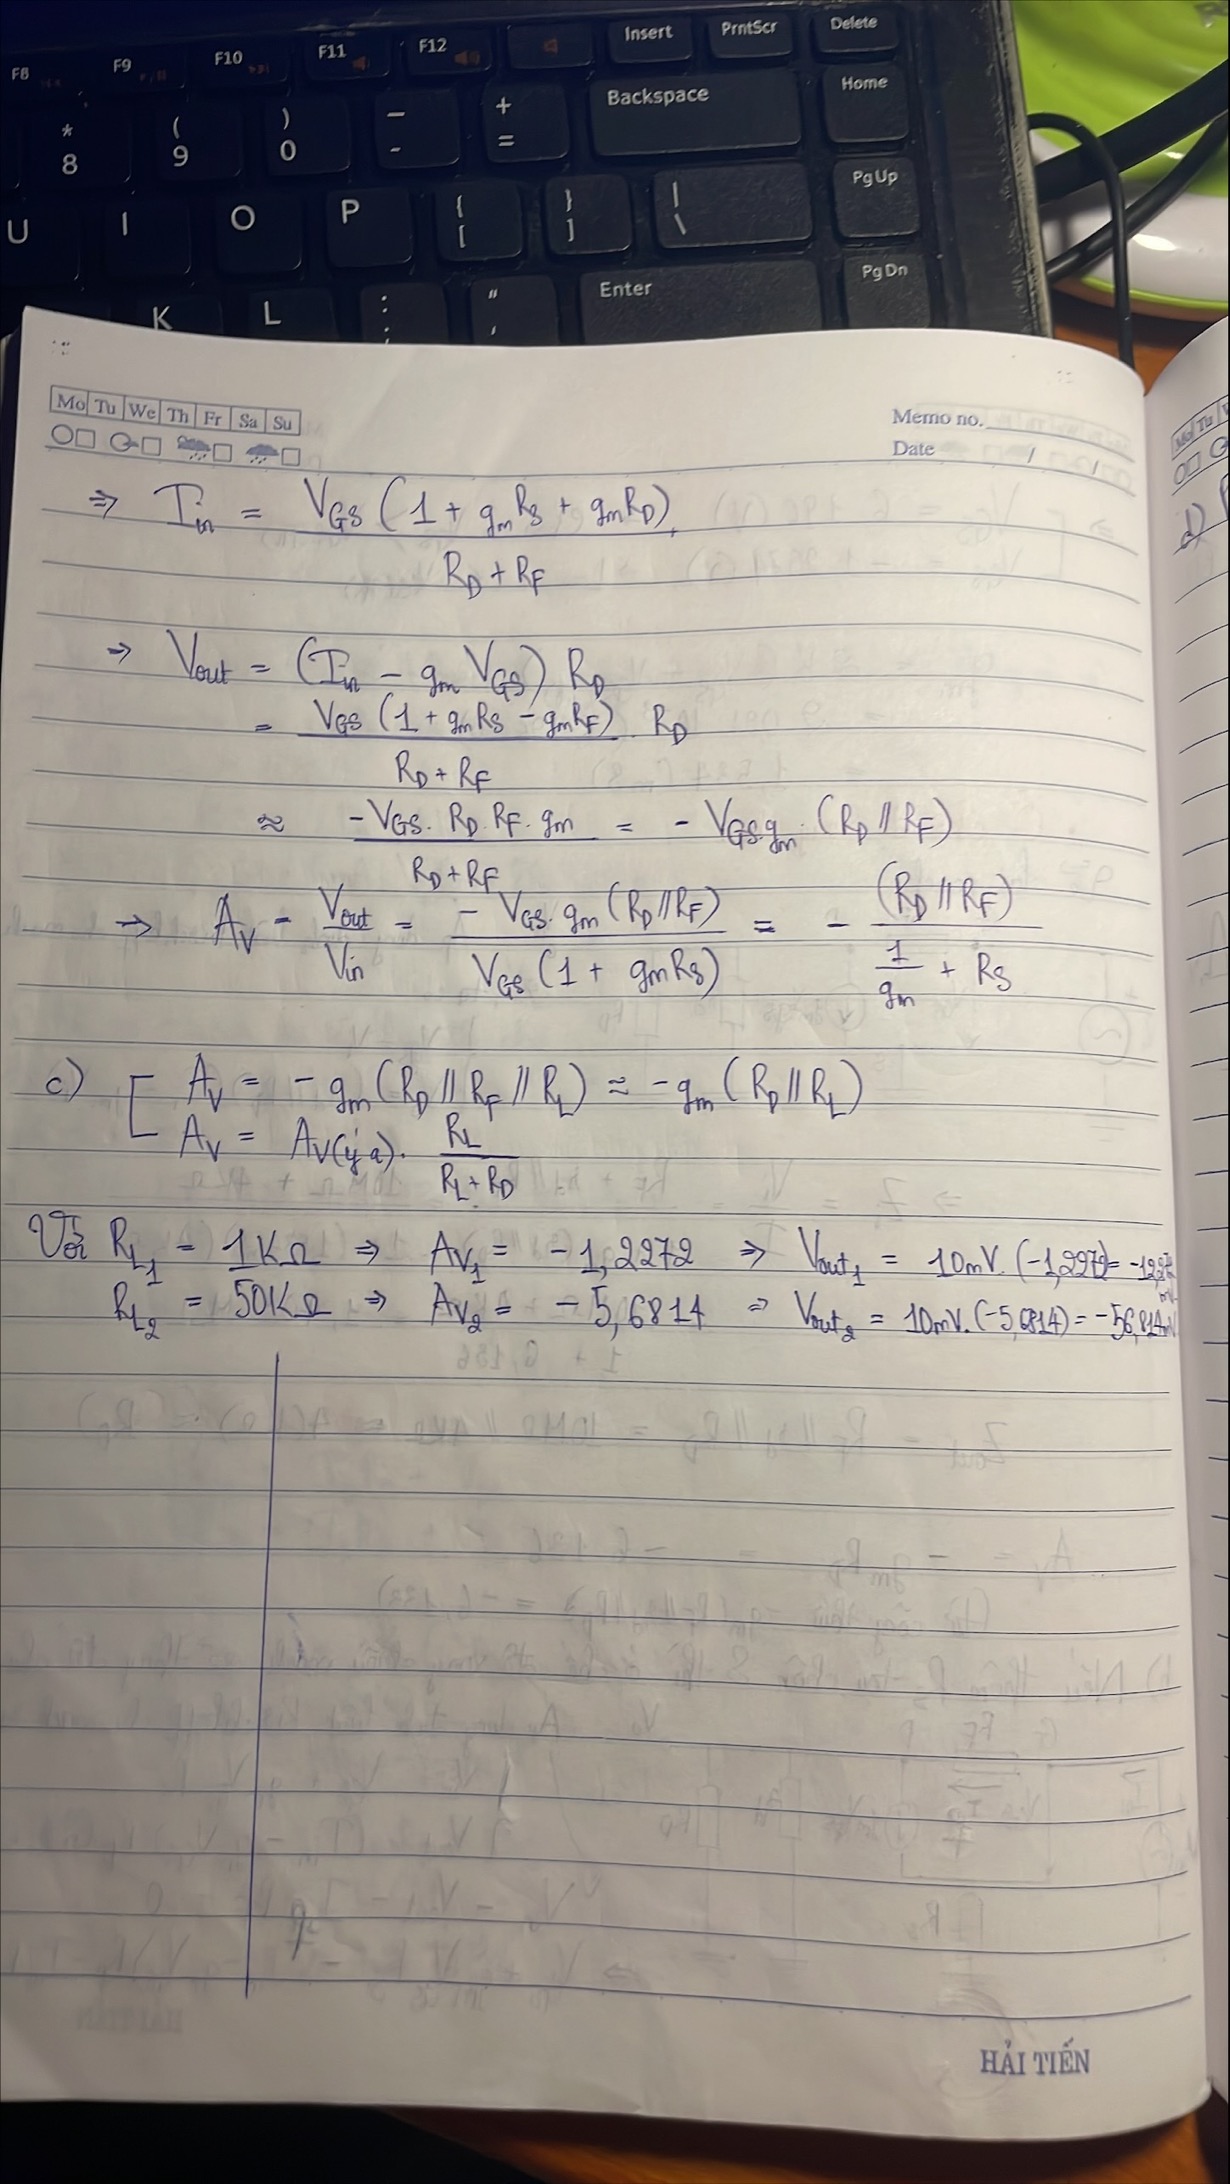 F8 F9 F10 F11 F12 Insert PrntScr Delete
* 8 ( 9 ) 0 _ - + = Backspace Home
U I O P { [ } ] | \ Pg Up
K L : ; " ' Enter Pg Dn
Mo Tu We Th Fr Sa Su
Memo no.
Date / /
Mo Tu
⇒ I_in = V_GS (1 + g_m R_S + g_m R_D) / (R_D + R_F)
d)
→ V_out = (I_in - g_m V_GS) R_D
= V_GS (1 + g_m R_S - g_m R_F) / (R_D + R_F) . R_D
≈ -V_GS . R_D . R_F . g_m / (R_D + R_F) = - V_GS . g_m . (R_D // R_F)
→ A_V = V_out / V_in = - V_GS . g_m (R_D // R_F) / V_GS (1 + g_m R_S) = - (R_D // R_F) / (1/g_m + R_S)
c) [ A_V = - g_m (R_D // R_F // R_L) ≈ - g_m (R_D // R_L)
A_V = A_V(ý a) . R_L / (R_L + R_D)
Với R_L1 = 1KΩ ⇒ A_V1 = - 1,2272 ⇒ V_out1 = 10mV . (-1,2272) = -12,272 mV
R_L2 = 50KΩ ⇒ A_V2 = - 5,6814 ⇒ V_out2 = 10mV . (-5,6814) = -56,814mV
HẢI TIẾN